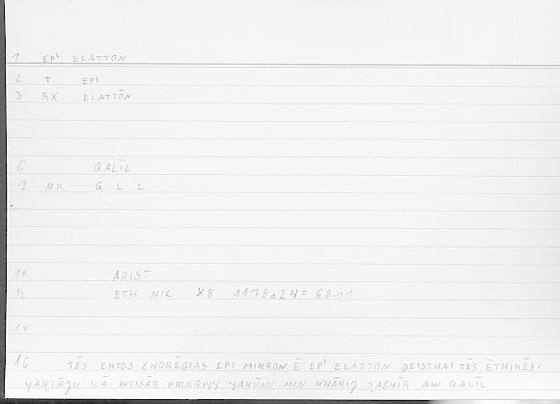 1 EPʹ ELATTON
2 T EPI
3 RX ELATTŌN
6 QALĪL
7 NK Q L L
11 ARIST
12 ETH NIC X8 1178a24 = 68.11
14
16 TĒS EKTOS CHORĒGIAS EPI MIKRON Ē EPʹ ELATTON DEISTHAI TĒS ĒTHIKĒS.
YAḤTĀǦU ILĀ YAKŪNU MIN KHĀRIǦ ṢAGHĪR AW QALĪL